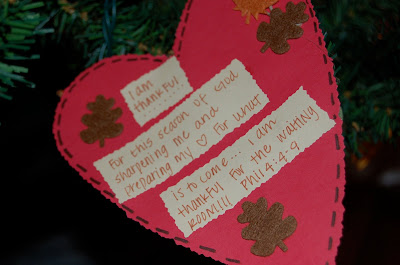 I am
thankful
For this season of God
sharpening me and
preparing my ♡ For what
is to come... I am
thankful For the waiting
ROOM!!! Phil 4:4-9